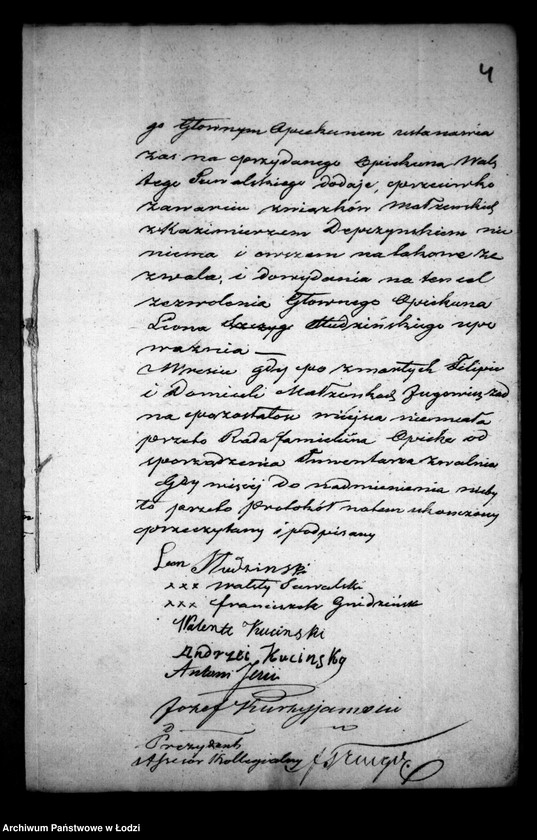 4
go Głownym Opiekunem ustanawia
zas na przydanego Opiekuna Walę
tego Suwalskiego dodaje, przeciwko
zawarciu związków Małżeńskich
z Kazimierzem Depczyńskiem nic
niema i owszem na takowe ze
zwala, i do wydania na ten cel
zezwolenia Głownego Opiekuna
Leona Studzińskiego upo
ważnia —
Wresicie gdy po zmarłych Filipie
i Domiceli Małżonkach żad
na pozostałosc miejsca niemiała
przeto Rada familijna Opiekę od
sporządzenia Inwentarza zwalnia
Gdy więcej do nadmienienia nieby
ło przeto Protokół na tem ukończony
przeczytany i podpisany
Leon Studzinski
xxx Walęty Suwalski
xxx franciszek
Walenty Kucinski
Andrzei Kucinsky
Antoni
Jozef
Prezydent
Assesor Kollegialny
Archiwum Państwowe w Łodzi